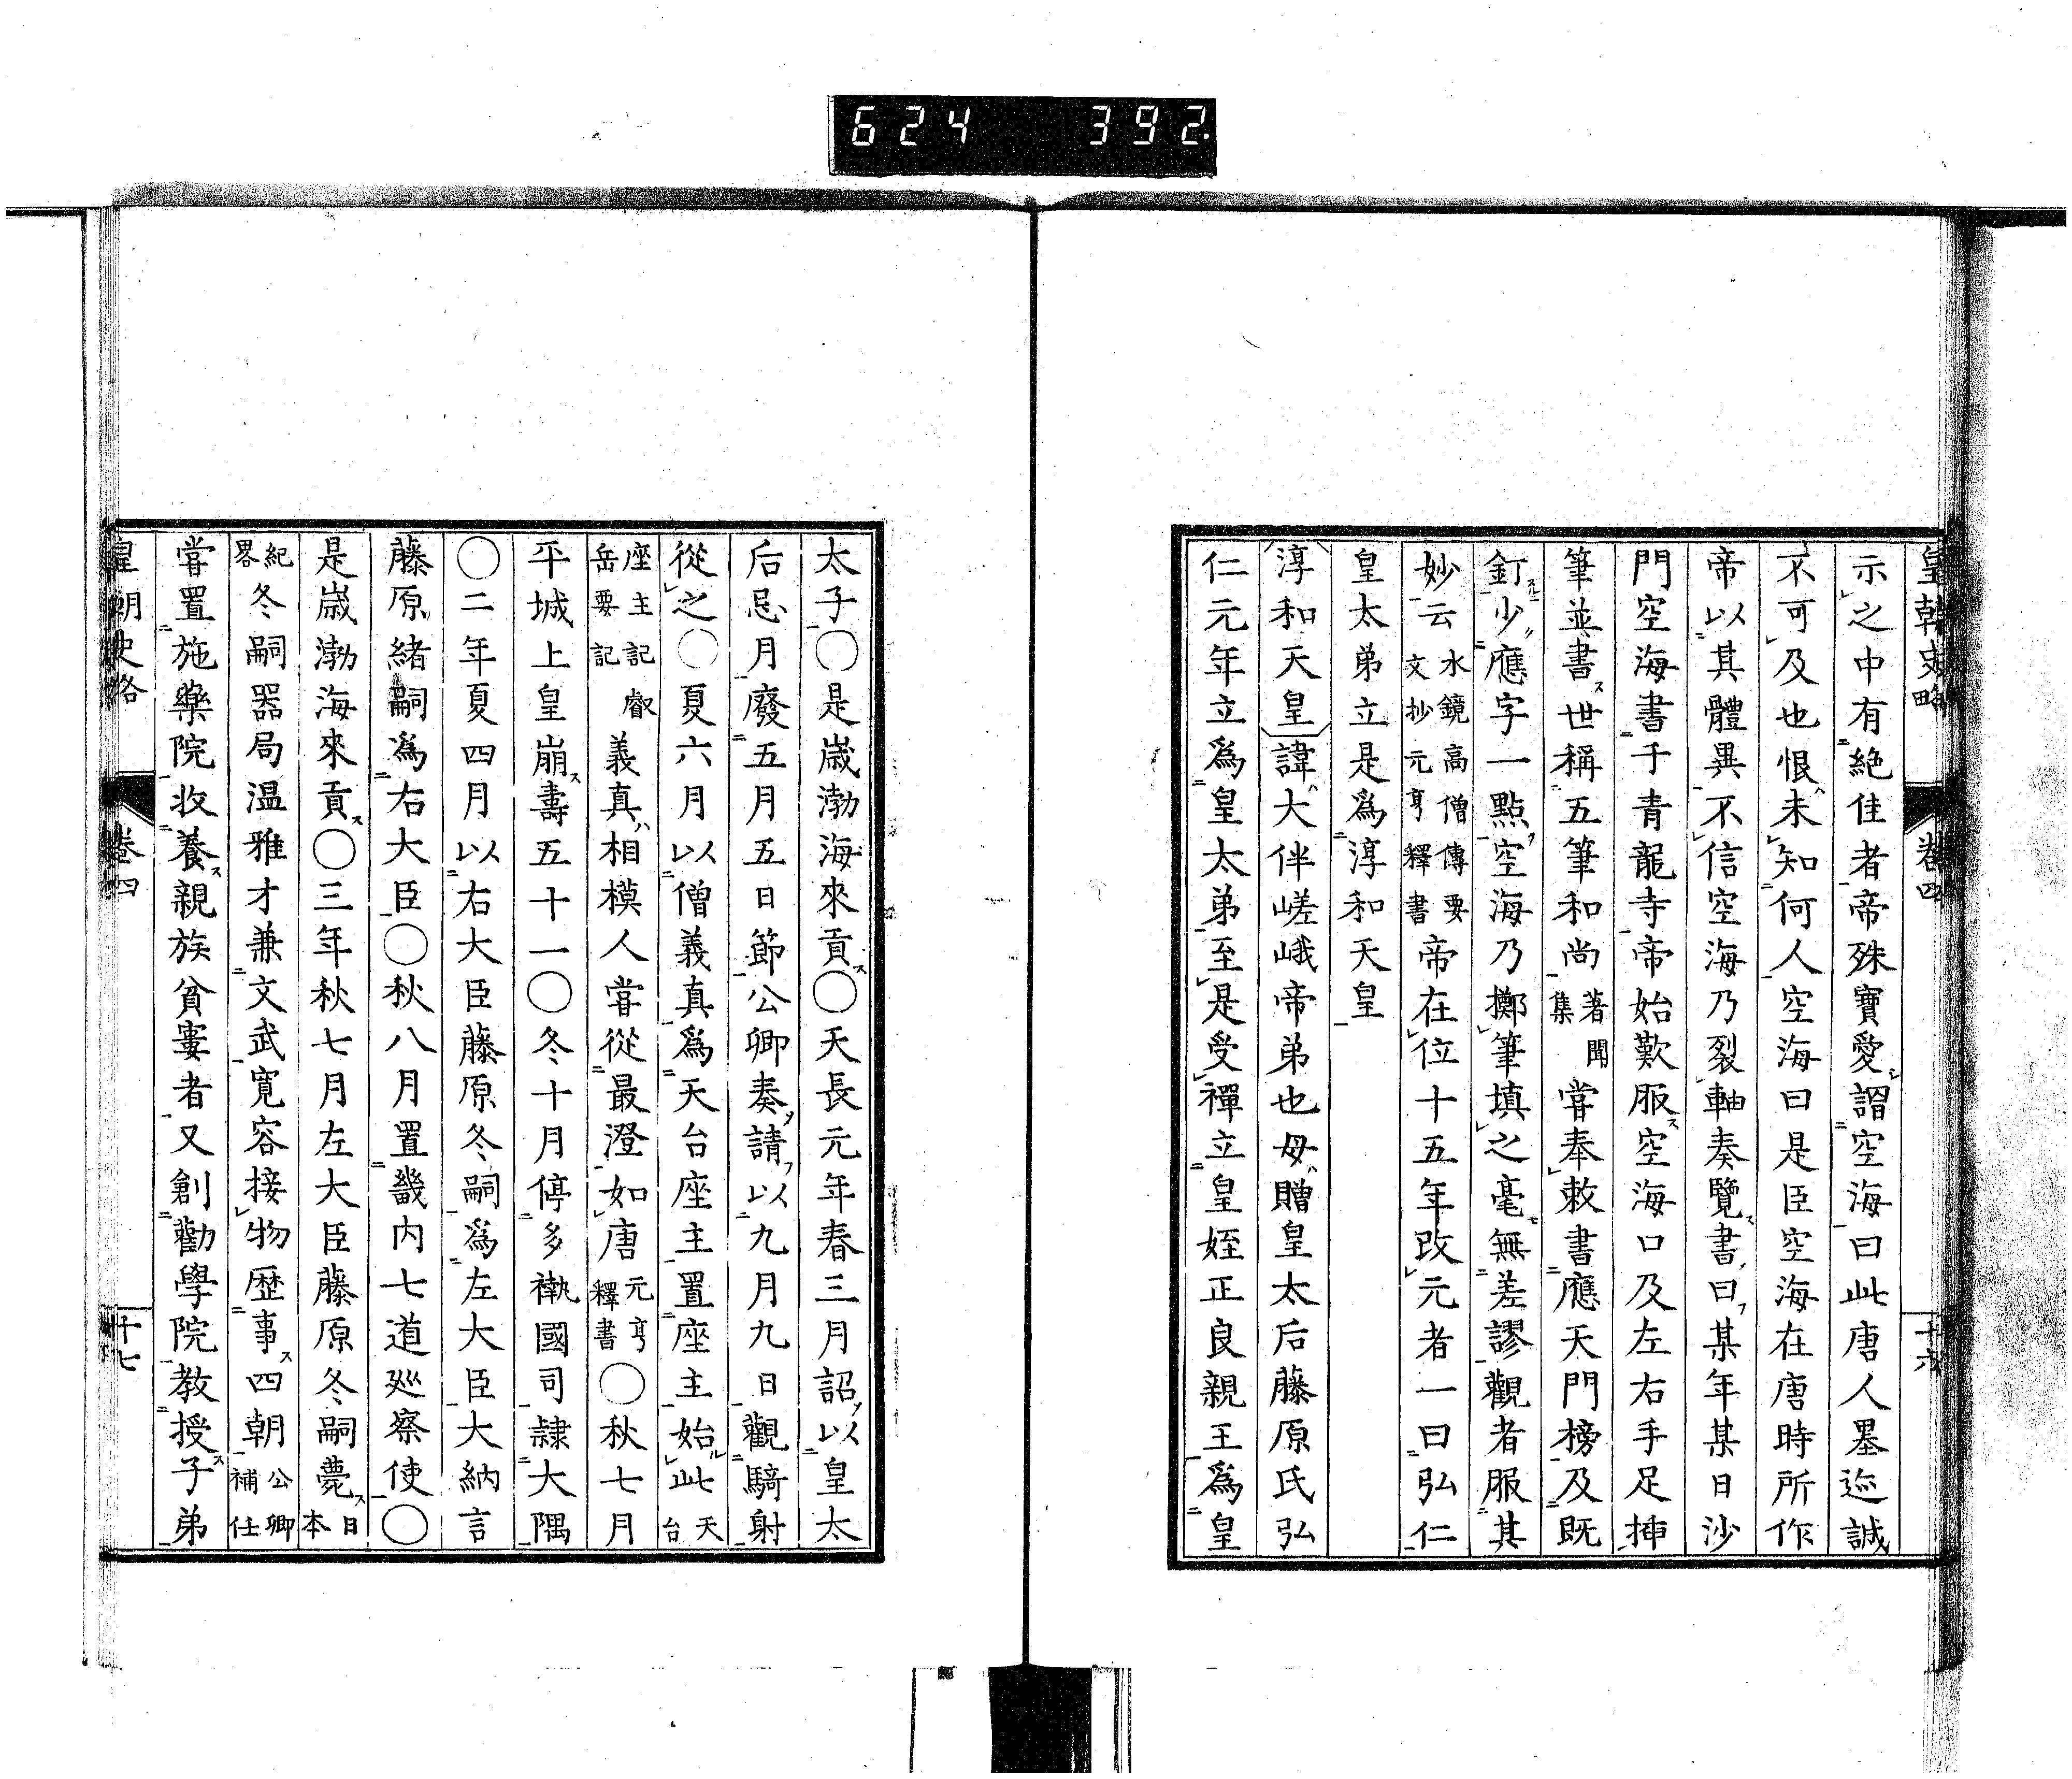 624 392
皇朝史略 卷四 十六
示之中有絶佳者帝殊寶愛謂空海曰此唐人墨迹誠
不可及也恨未知何人空海曰是臣空海在唐時所作
帝以其體異不信空海乃裂軸奏覽書曰某年某日沙
門空海書于青龍寺帝始歎服空海口及左右手足挿
筆並書世稱五筆和尚著聞集嘗奉敕書應天門榜及既
釘少應字一點空海乃擲筆填之毫無差謬觀者服其
妙云水鏡高僧傳要文抄元亨釋書帝在位十五年改元者一曰弘仁
皇太弟立是爲淳和天皇
淳和天皇諱大伴嵯峨帝弟也母贈皇太后藤原氏弘
仁元年立爲皇太弟至是受禪立皇姪正良親王爲皇
太子○是歳渤海來貢○天長元年春三月詔以皇太
后忌月廢五月五日節公卿奏請以九月九日觀騎射
從之○夏六月以僧義真爲天台座主置座主始此天台
座主記叡岳要記義真相模人嘗從最澄如唐元亨釋書○秋七月
平城上皇崩壽五十一○冬十月停多褹國司隷大隅
○二年夏四月以右大臣藤原冬嗣爲左大臣大納言
藤原緒嗣爲右大臣○秋八月置畿内七道巡察使○
是歳渤海來貢○三年秋七月左大臣藤原冬嗣薨日本
紀畧冬嗣器局温雅才兼文武寛容接物歴事四朝公卿補任
嘗置施藥院收養親族貧窶者又創勸學院教授子弟
皇朝史略 卷四 十七